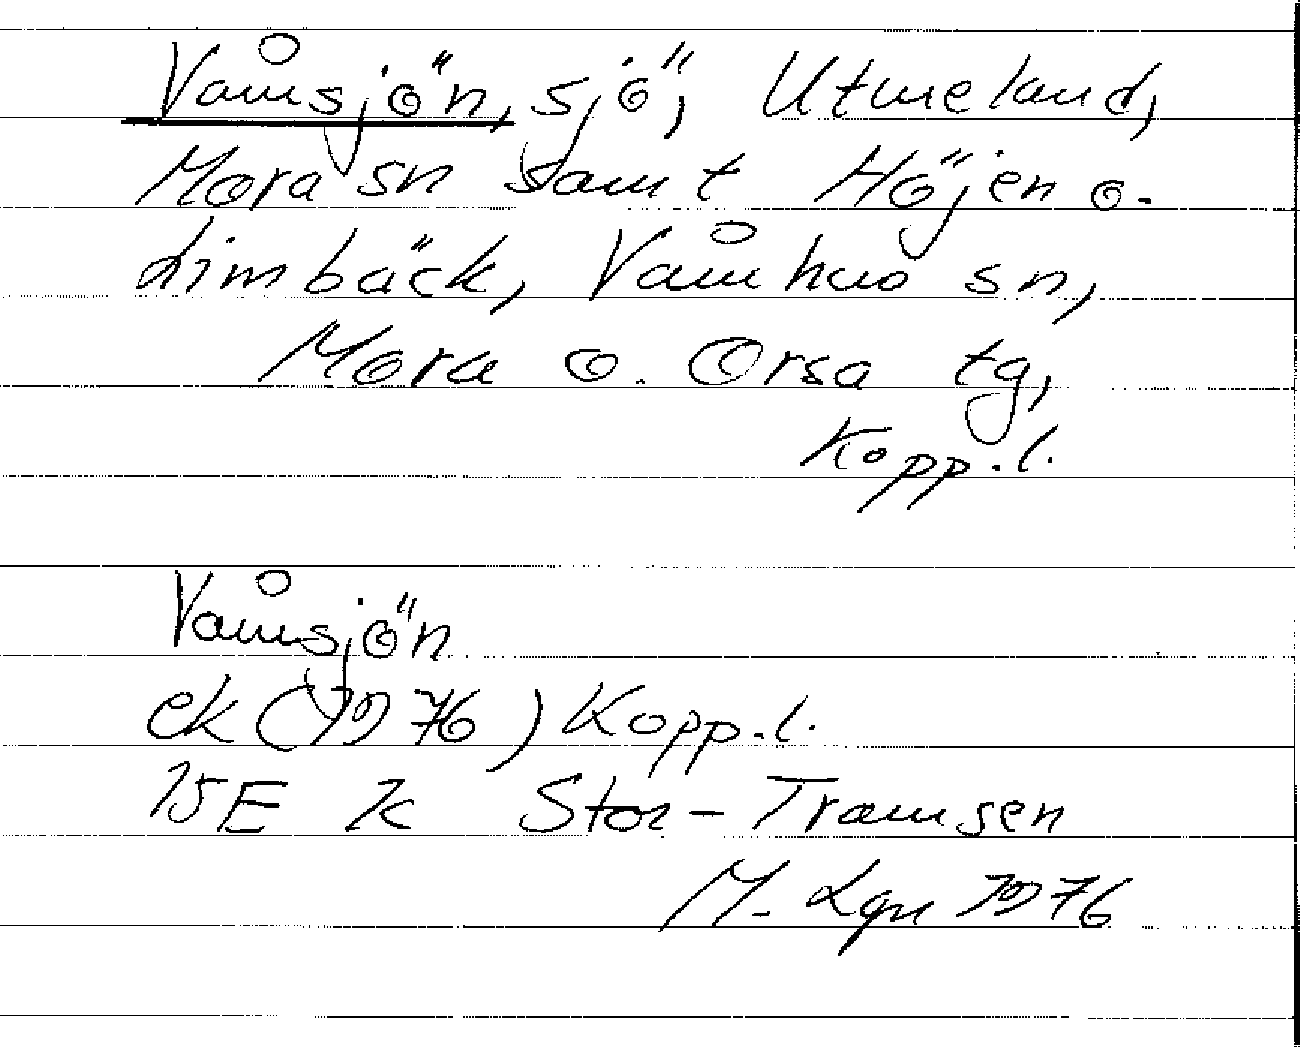 Våmsjön, sjö, Utmeland,
Mora sn samt Höjen o.
Limbäck, Våmhus sn,
Mora o. Orsa tg,
Kopp.l.
Våmsjön
ek (1976) Kopp.l.
15E k Stor-Tramsen
M. Lgn 1976